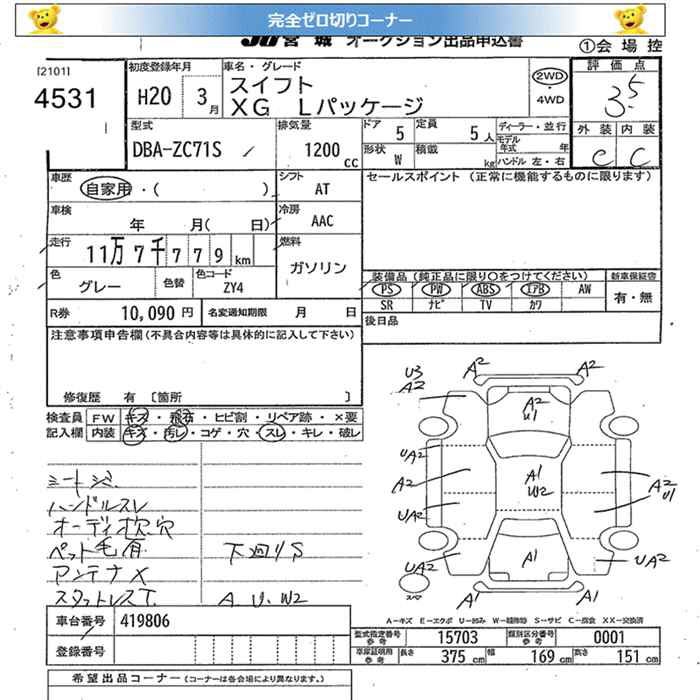 完全ゼロ切りコーナー
JU宮城 オークション出品申込書
①会場控
[2101]
4531
初度登録年月
H20 3月
車名・グレード
スイフト
XG Lパッケージ
2WD
・4WD
評価点
3.5
外装 内装
C C
型式
DBA-ZC71S
排気量
1200cc
ドア 5
形状 W
定員 5人
積載 kg
ディーラー・並行
モデル年式 年
ハンドル 左・右
車歴
自家用・( )
シフト AT
セールスポイント(正常に機能するものに限ります)
車検
年 月( 日)
冷房 AAC
走行
11万7千779km
燃料
ガソリン
色
グレー
色替
色コード
ZY4
装備品(純正品に限り○をつけてください)
新車保証書
PS PW ABS エアB AW
SR ナビ TV カワ
有・無
R券 10,090円
名変通知期限 月 日
後日品
注意事項申告欄(不具合内容等は具体的に記入して下さい)
修復歴 有 [箇所 ]
検査員
記入欄
FW キズ・飛石・ヒビ割・リペア跡・×要
内装 キズ・汚レ・コゲ・穴・スレ・キレ・破レ
シートシミ
ハンドルスレ
オーディ抜穴
ペット毛有 下廻りS
アンテナX
スタットレスT. A.U.W2
A2 A2
U3
A2
A2
U1
UA2
A2
UA2
UA2
A1
W2
A2
U1
A1
UA2
スペア
A1 A1
A-キズ E-エクボ U-凹み W-補修跡 S-サビ C-腐食 XX-交換済
車台番号 419806
登録番号
型式指定番号参考 15703
類別区分番号参考 0001
車庫証明用参考
長さ 375cm 幅 169cm 高さ 151cm
希望出品コーナー(コーナーは各会場により異なります。)